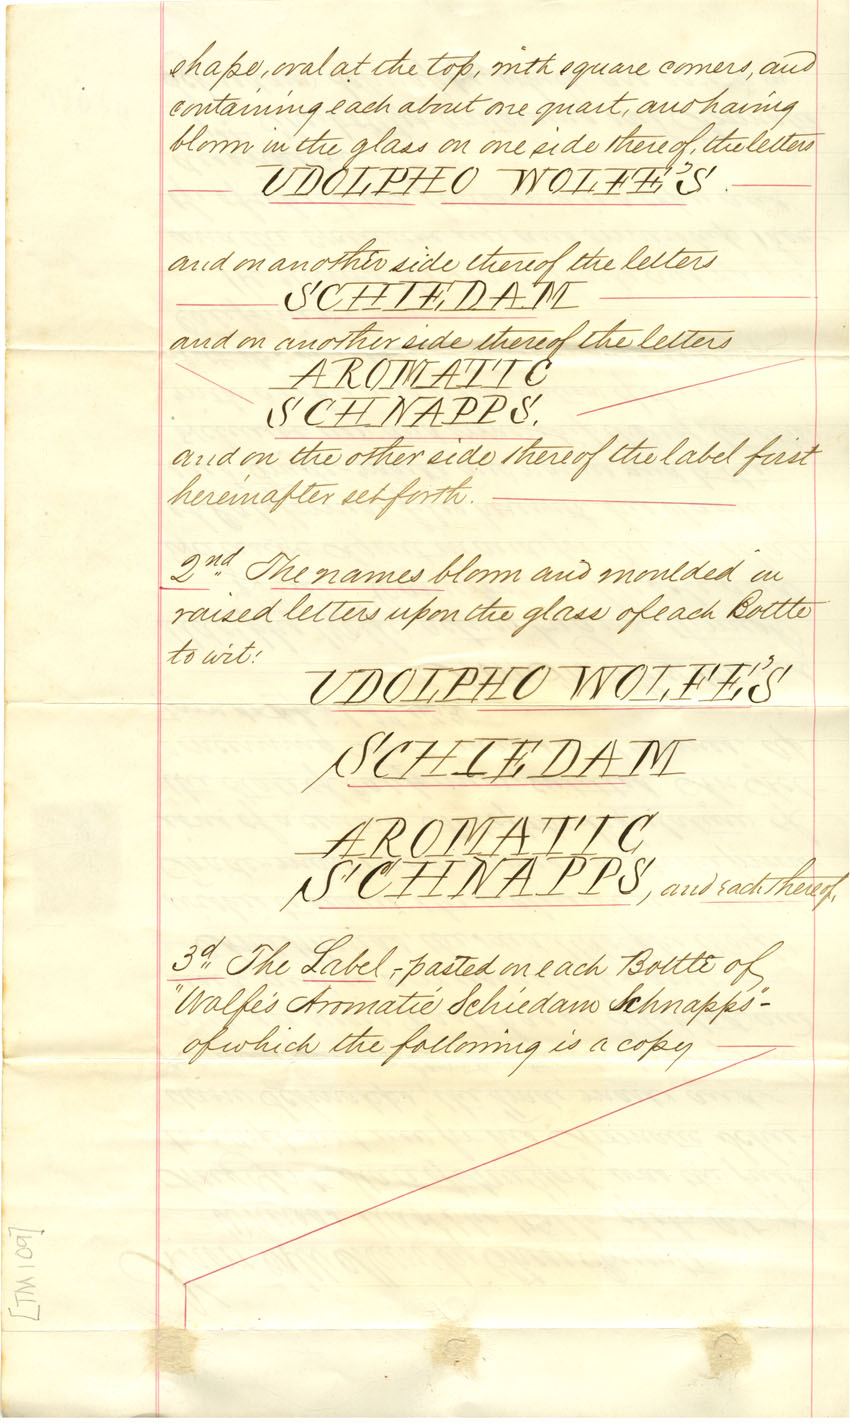 shape, oval at the top, with square corners, and
containing each about one quart, and having
blown in the glass on one side thereof, the letters
UDOLPHO WOLFE'S.
and on another side thereof the letters
SCHIEDAM
and on another side thereof the letters
AROMATIC
SCHNAPPS.
and on the other side thereof the label first
hereinafter set forth.
2nd The names blown and moulded in
raised letters upon the glass of each Bottle
to wit:
UDOLPHO WOLFE'S
SCHIEDAM
AROMATIC
SCHNAPPS, and each thereof,
3d The Label, - pasted on each Bottle of
"Wolfe's Aromatic Schiedam Schnapps" -
of which the following is a copy
[TM 109]